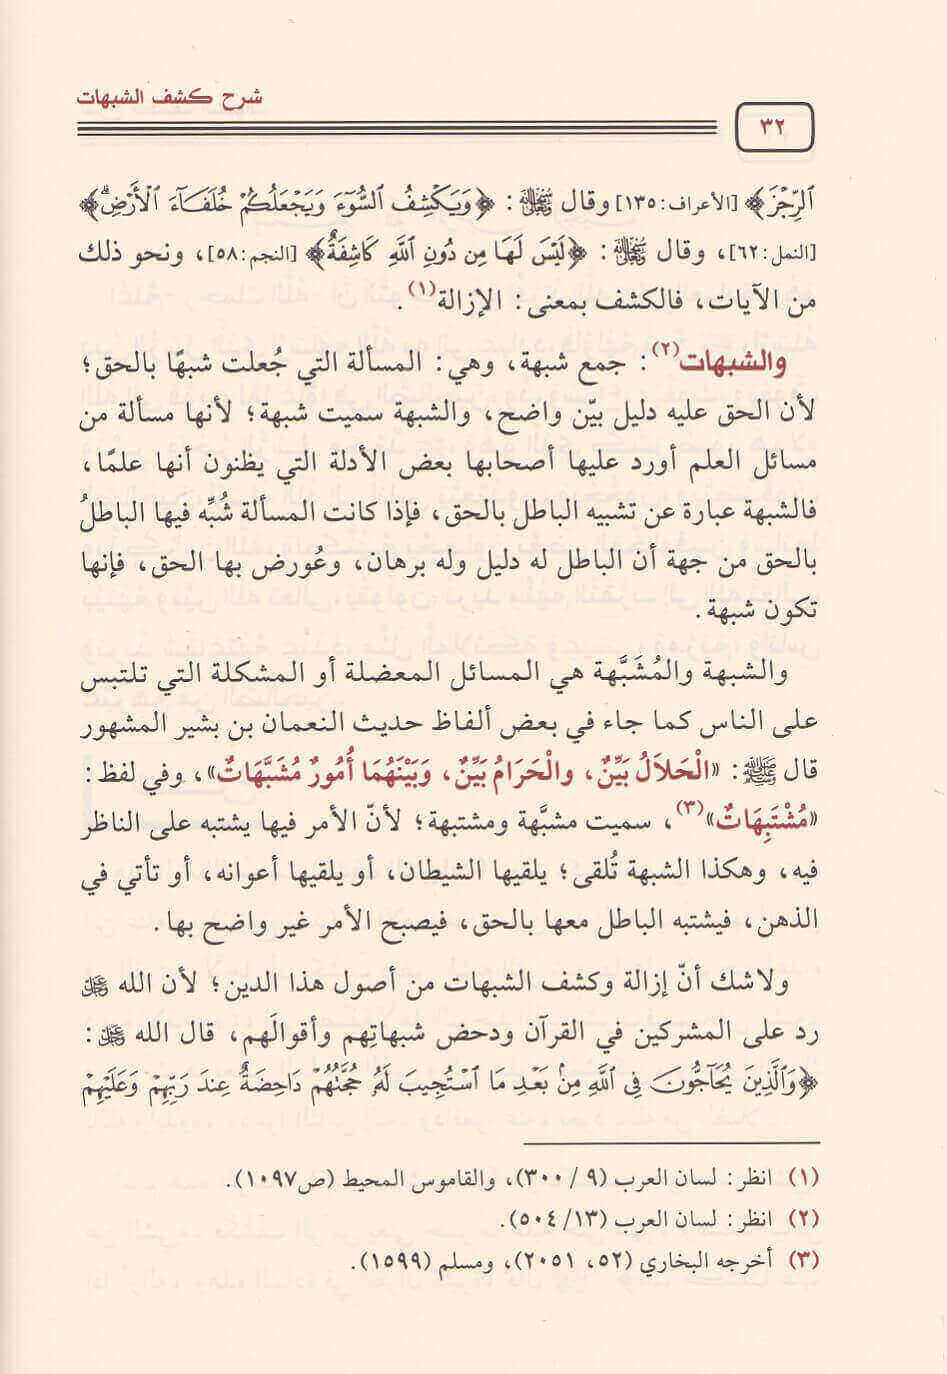 شرح كشف الشبهات
٣٢
ٱلرِّجْزَ﴾ [الأعراف: ١٣٥] وقال ﷾: ﴿وَيَكْشِفُ ٱلسُّوٓءَ وَيَجْعَلُكُمْ خُلَفَآءَ ٱلْأَرْضِ﴾
[النمل: ٦٢]، وقال ﷾: ﴿لَيْسَ لَهَا مِن دُونِ ٱللَّهِ كَاشِفَةٌ﴾ [النجم: ٥٨]، ونحو ذلك
من الآيات، فالكشف بمعنى: الإزالة(١).
والشبهات(٢): جمع شبهة، وهي: المسألة التي جُعلت شبهًا بالحق؛
لأن الحق عليه دليل بيّن واضح، والشبهة سميت شبهة؛ لأنها مسألة من
مسائل العلم أورد عليها أصحابها بعض الأدلة التي يظنون أنها علمًا،
فالشبهة عبارة عن تشبيه الباطل بالحق، فإذا كانت المسألة شُبِّه فيها الباطلُ
بالحق من جهة أن الباطل له دليل وله برهان، وعُورض بها الحق، فإنها
تكون شبهة.
والشبهة والمُشَبَّهة هي المسائل المعضلة أو المشكلة التي تلتبس
على الناس كما جاء في بعض ألفاظ حديث النعمان بن بشير المشهور
قال ﷺ: «الْحَلاَلُ بَيِّنٌ، والْحَرَامُ بَيِّنٌ، وَبَيْنَهُمَا أُمُورٌ مُشَبَّهَاتٌ»، وفي لفظ:
«مُشْتَبِهَاتٌ»(٣)، سميت مشبَّهة ومشتبهة؛ لأنّ الأمر فيها يشتبه على الناظر
فيه، وهكذا الشبهة تُلقى؛ يلقيها الشيطان، أو يلقيها أعوانه، أو تأتي في
الذهن، فيشتبه الباطل معها بالحق، فيصبح الأمر غير واضح بها.
ولاشك أنّ إزالة وكشف الشبهات من أصول هذا الدين؛ لأن الله ﷿
رد على المشركين في القرآن ودحض شبهاتِهم وأقوالَهم، قال الله ﷿:
﴿وَٱلَّذِينَ يُحَآجُّونَ فِى ٱللَّهِ مِنۢ بَعْدِ مَا ٱسْتُجِيبَ لَهُۥ حُجَّتُهُمْ دَاحِضَةٌ عِندَ رَبِّهِمْ وَعَلَيْهِمْ
(١) انظر: لسان العرب (٩/ ٣٠٠)، والقاموس المحيط (ص١٠٩٧).
(٢) انظر: لسان العرب (١٣/ ٥٠٤).
(٣) أخرجه البخاري (٥٢، ٢٠٥١)، ومسلم (١٥٩٩).